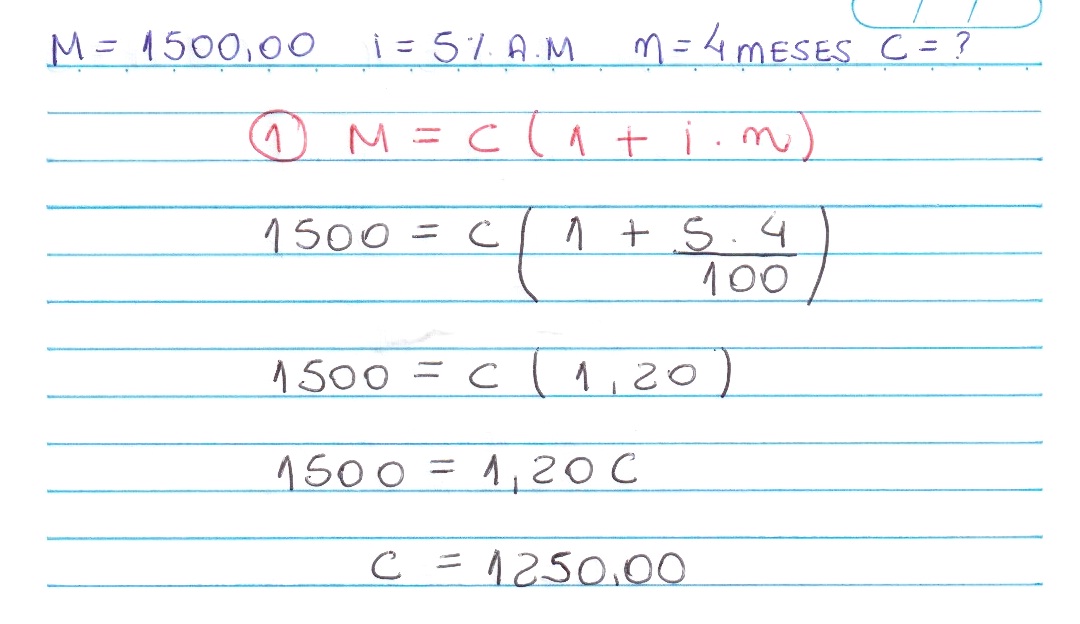 M = 1500,00 i = 5% A.M n = 4 MESES C = ?
① M = C ( 1 + i . n )
1500 = C ( 1 + 5 . 4 / 100 )
1500 = C ( 1,20 )
1500 = 1,20 C
C = 1250,00